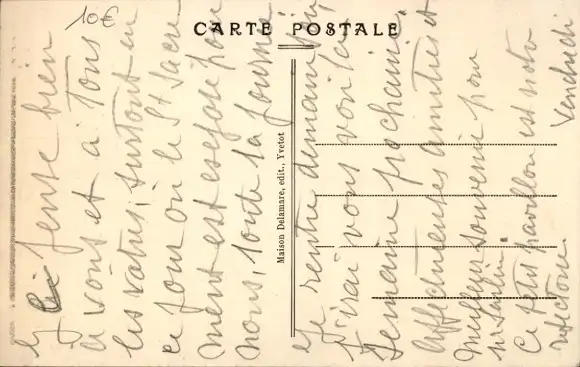 10€
CARTE POSTALE
Maison Delamare, edit., Yvetot
Je pense bien
à vous et à tous
les vôtres, surtout en
ce jour où le St Sacre
ment est exposé pour
nous, toute la journée
Je rentre demain
J'irai vous voir la
semaine prochaine
Affectueuses amitiés et
meilleur souvenir pour
Ce petit pavillon est notre
réfectoire.
Vendredi